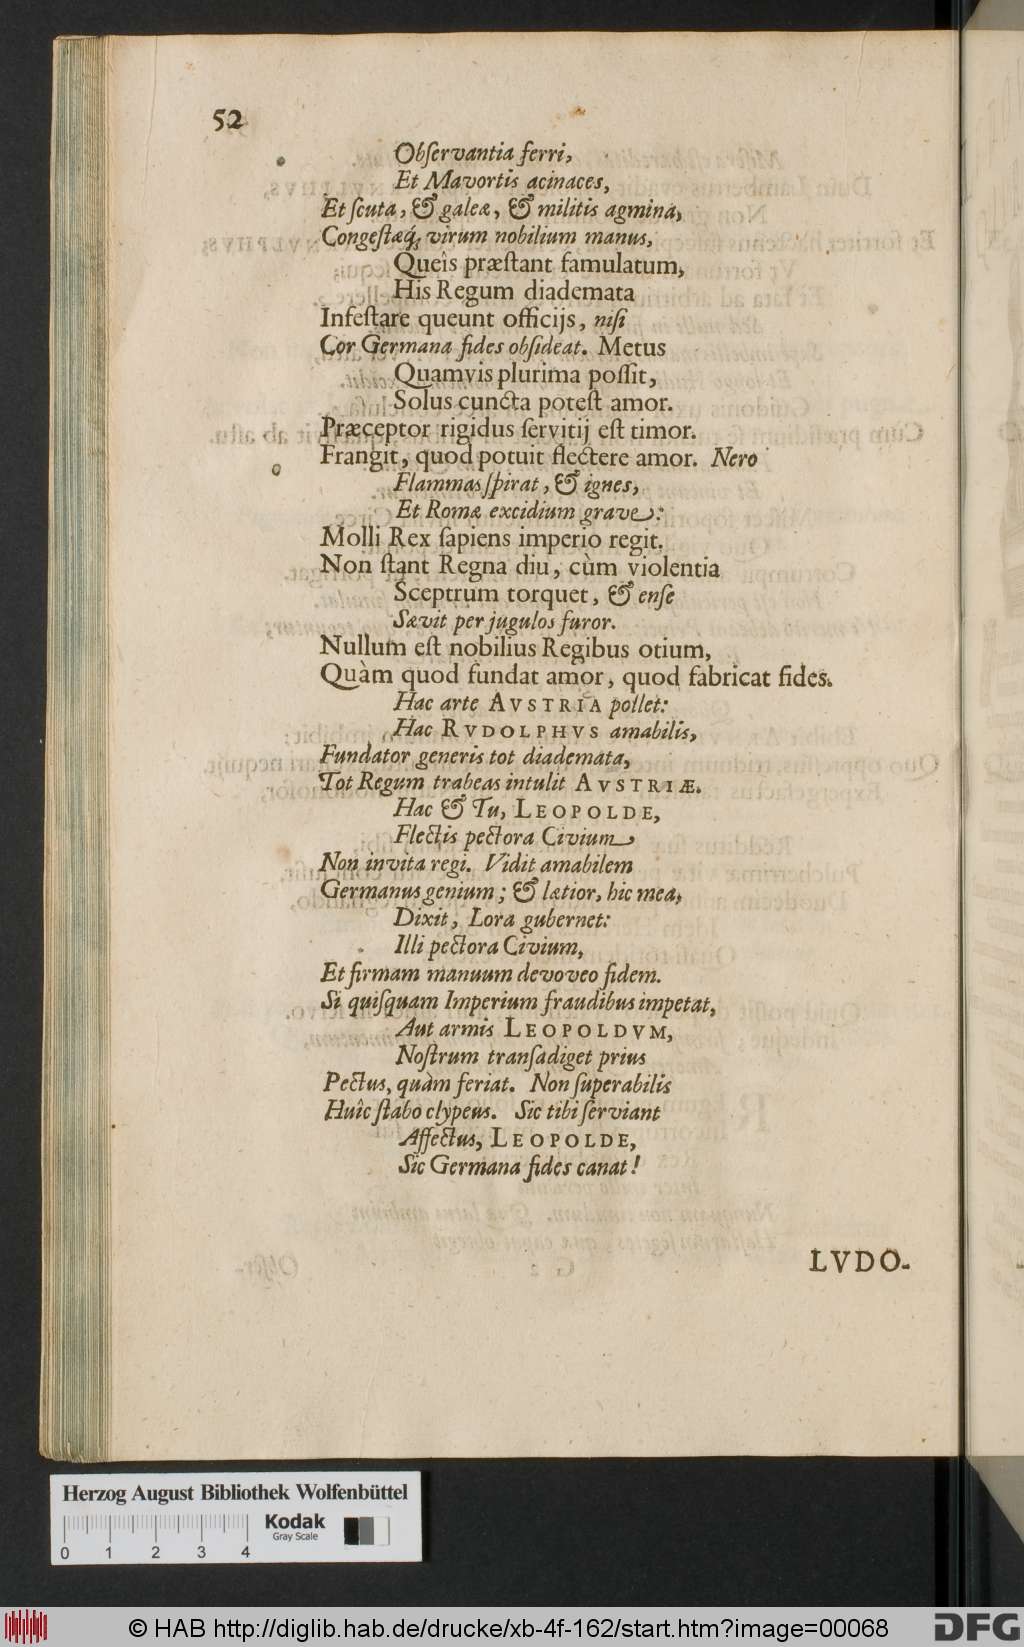 52
Obſervantia ferri,
Et Mavortis acinaces,
Et ſcuta, & galeæ, & militis agmina,
Congeſtæq́; virum nobilium manus,
Queîs præſtant famulatum,
His Regum diademata
Infeſtare queunt officijs, niſi
Cor Germana fides obſideat. Metus
Quamvis plurima poſſit,
Solus cuncta poteſt amor.
Præceptor rigidus ſervitij eſt timor.
Frangit, quod potuit flectere amor. Nero
Flammas ſpirat, & ignes,
Et Romæ excidium grave:
Molli Rex ſapiens imperio regit.
Non ſtant Regna diu, cùm violentia
Sceptrum torquet, & enſe
Sævit per jugulos furor.
Nullum eſt nobilius Regibus otium,
Quàm quod fundat amor, quod fabricat fides.
Hac arte AVSTRIA pollet:
Hac RVDOLPHVS amabilis,
Fundator generis tot diademata,
Tot Regum trabeas intulit AVSTRIÆ.
Hac & Tu, LEOPOLDE,
Flectis pectora Civium,
Non invita regi. Vidit amabilem
Germanus genium; & lætior, hic mea,
Dixit, Lora gubernet:
Illi pectora Civium,
Et firmam manuum devoveo fidem.
Si quiſquam Imperium fraudibus impetat,
Aut armis LEOPOLDVM,
Noſtrum tranſadiget prius
Pectus, quàm feriat. Non ſuperabilis
Huîc ſtabo clypeus. Sic tibi ſerviant
Affectus, LEOPOLDE,
Sic Germana fides canat!
LVDO-
Herzog August Bibliothek Wolfenbüttel
Kodak
Gray Scale
0 1 2 3 4
© HAB http://diglib.hab.de/drucke/xb-4f-162/start.htm?image=00068
DFG